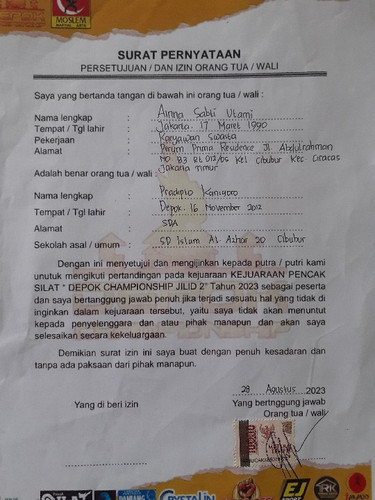 MOSLEM
SURAT PERNYATAAN
PERSETUJUAN / DAN IZIN ORANG TUA / WALI
Saya yang bertanda tangan di bawah ini orang tua / wali :
Nama lengkap : Ainna Sabti Utami
Tempat / Tgl lahir : Jakarta. 17 Maret 1990
Pekerjaan : Karyawan Swasta
Alamat : Perum Prima Residence Jl. Abdulrahman
No B3 Rt 012/05 Kel Cibubur Kec Ciracas
Jakarta Timur
Adalah benar orang tua / wali :
Nama lengkap : Pradipto Kanigoro
Tempat / Tgl lahir : Depok. 16 November 2012
Alamat : SDA
Sekolah asal / umum : SD Islam Al Azhar 20 Cibubur
Dengan ini menyetujui dan mengijinkan kepada putra / putri kami
unutuk mengikuti pertandingan pada kejuaraan KEJUARAAN PENCAK
SILAT " DEPOK CHAMPIONSHIP JILID 2" Tahun 2023 sebagai peserta
dan saya bertanggung jawab penuh jika terjadi sesuatu hal yang tidak di
inginkan dalam kejuaraan tersebut, yaitu saya tidak akan menuntut
kepada penyelenggara dan atau pihak manapun dan akan saya
selesaikan secara kekeluargaan.
Demikian surat izin ini saya buat dengan penuh kesadaran dan
tanpa ada paksaan dari pihak manapun.
29 Agustus 2023
Yang di beri izin
Yang bertnggung jawab
Orang tua / wali
SILAT
CRYSTALIN
EJ
SPORT
RK